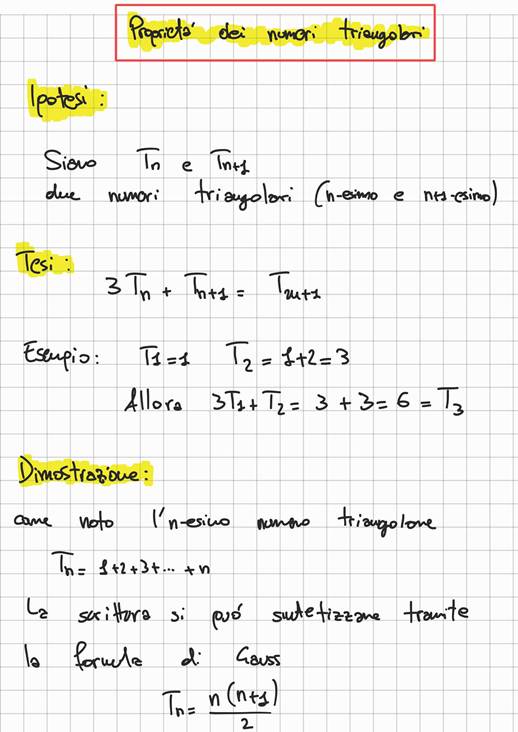 Proprietà dei numeri triangolari
Ipotesi:
Siano Tn e Tn+1
due numeri triangolari (n-esimo e n+1-esimo)
Tesi:
3Tn + Tn+1 = T2n+1
Esempio: T1=1 T2 = 1+2=3
Allora 3T1+T2= 3+3=6=T3
Dimostrazione:
come noto l'n-esimo numero triangolare
Tn= 1+2+3+... +n
La scrittura si può sintetizzare tramite
la formula di Gauss
Tn= n(n+1)
2